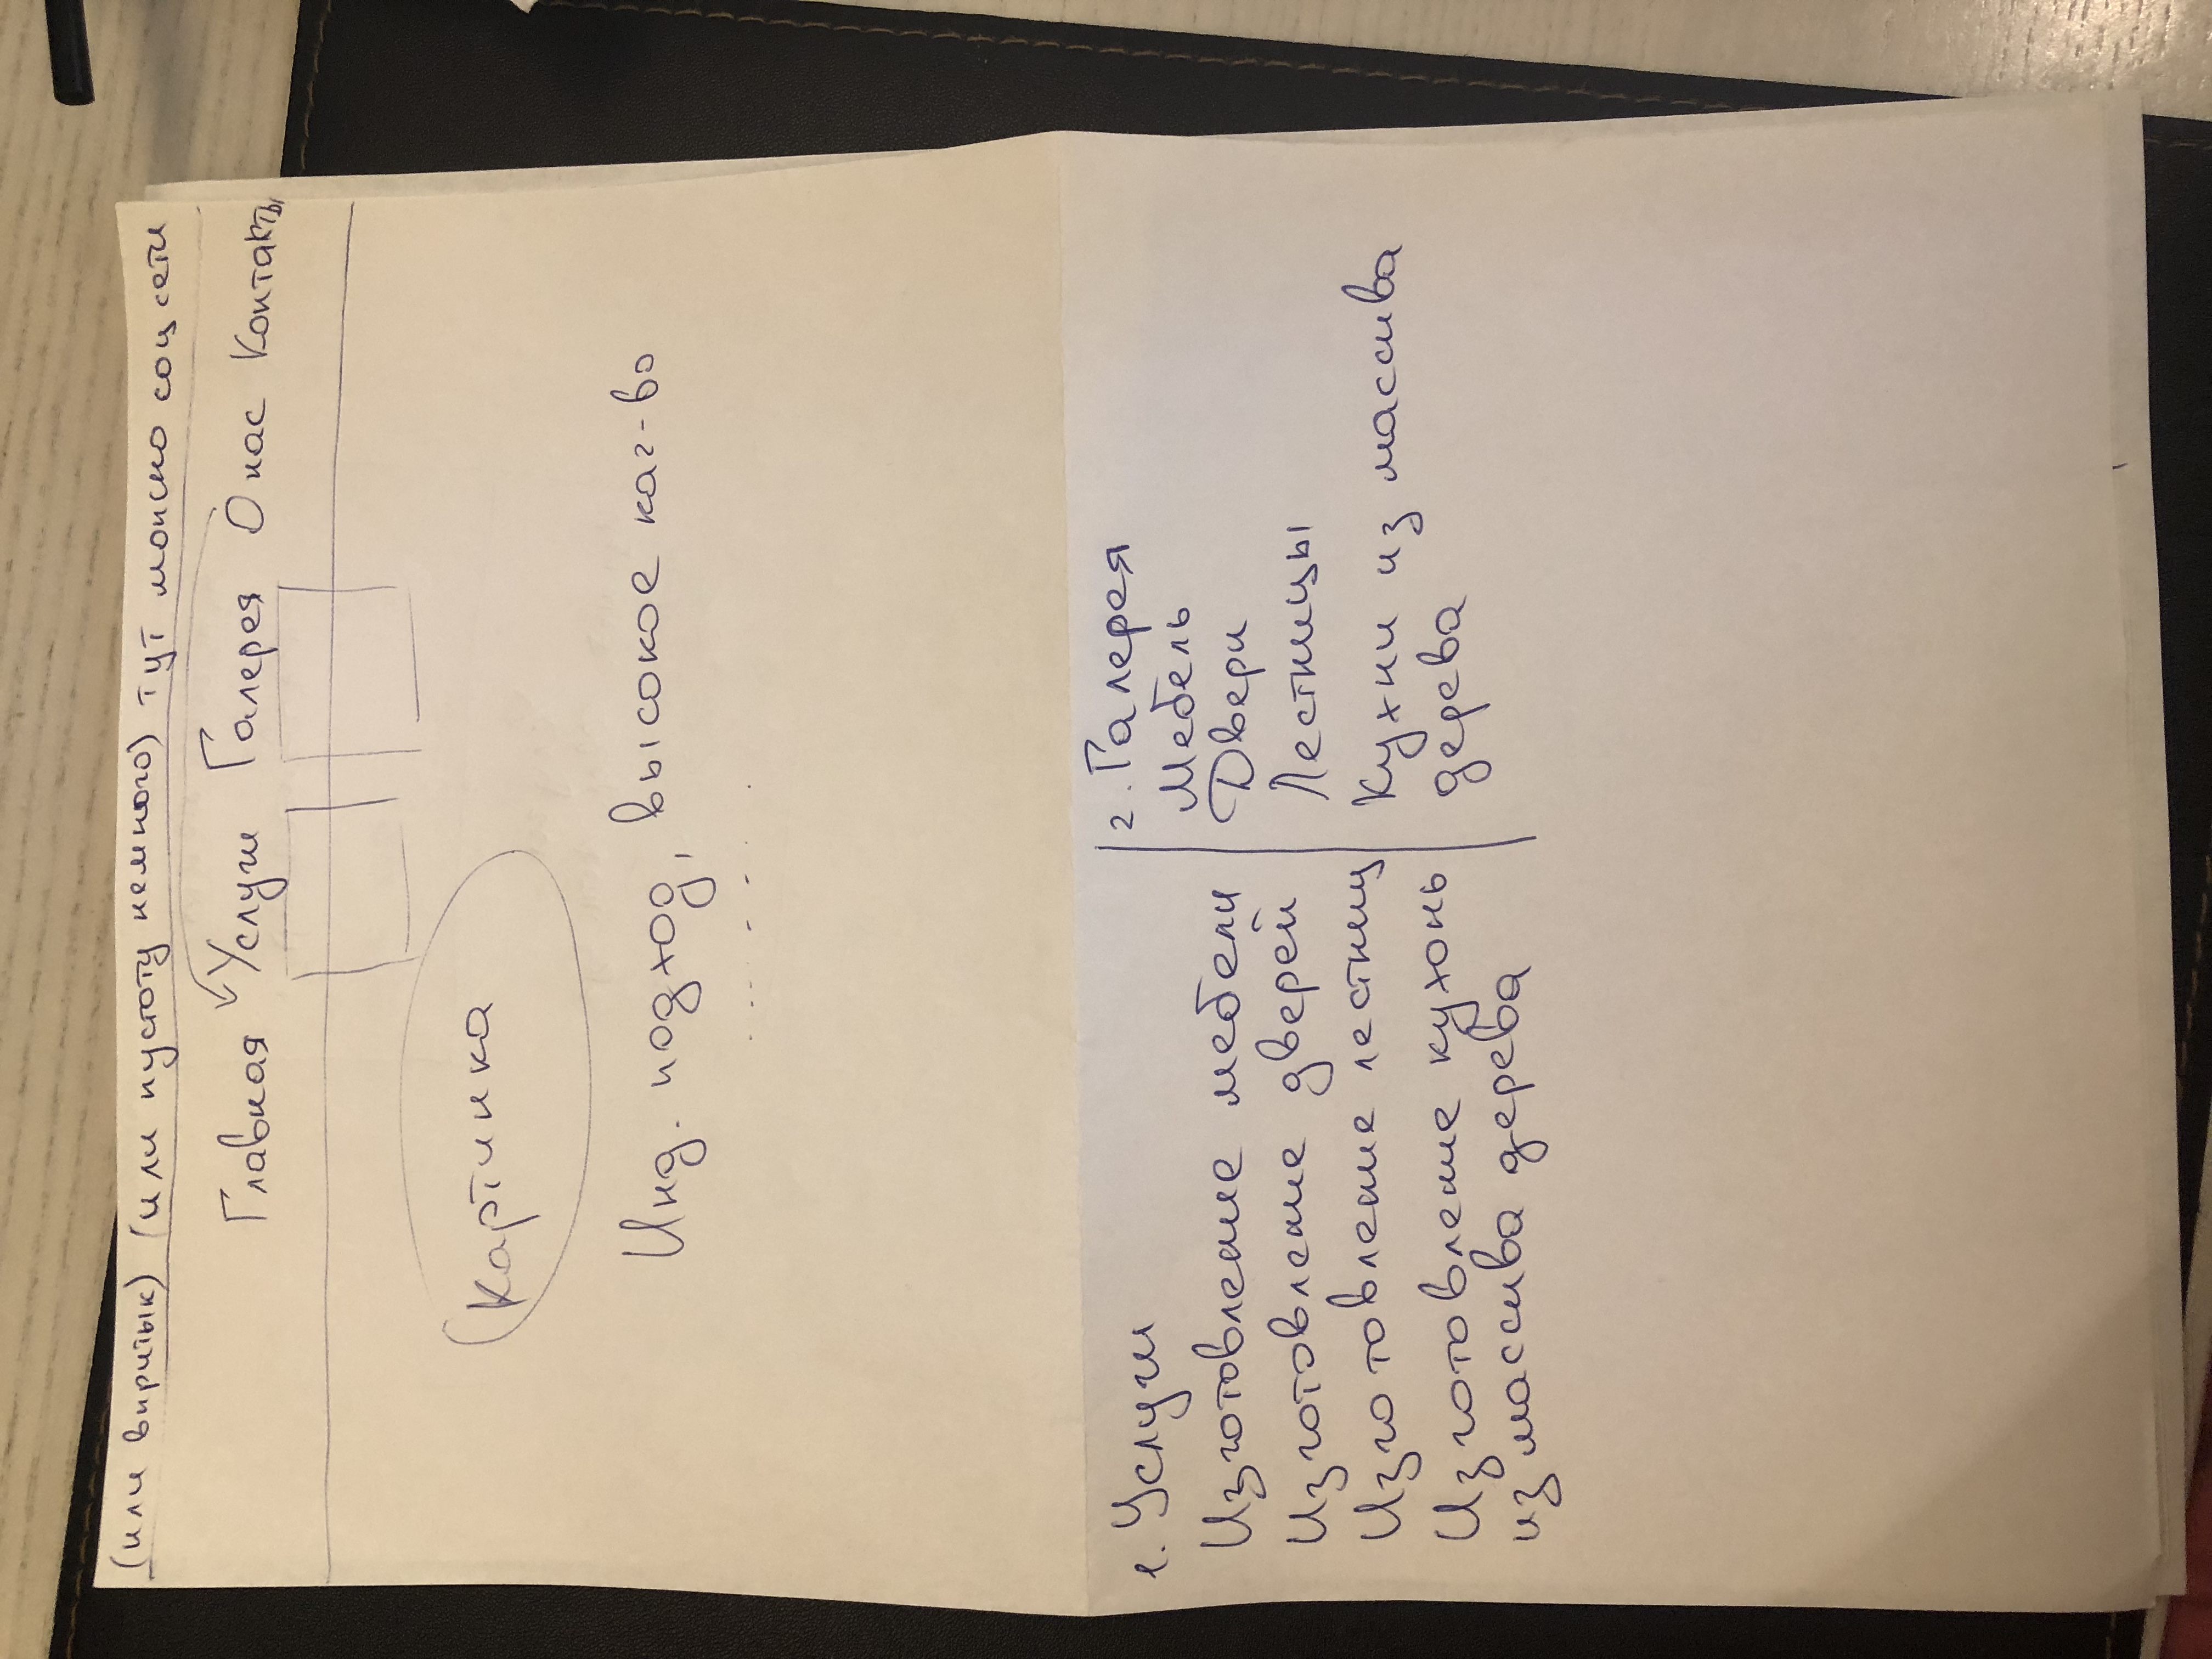 (или впритык) (или пустоту немного) тут можно соц сети
Главная Услуги Галерея О нас Контакты
Картинка
Инд. подход, высокое кач-во
1. Услуги
Изготовление мебели
Изготовление дверей
Изготовление лестниц
Изготовление кухонь
из массива дерева
2. Галерея
Мебель
Двери
Лестницы
Кухни из массива
дерева